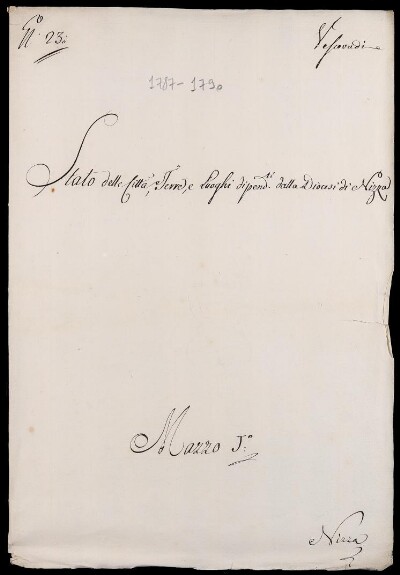 N.º 23.
Vescovadi
1787-1790
Stato delle Città, Terre, e Luoghi dipend.ti dalla Diocesi di Nizza
Mazzo 5.º
Nizza